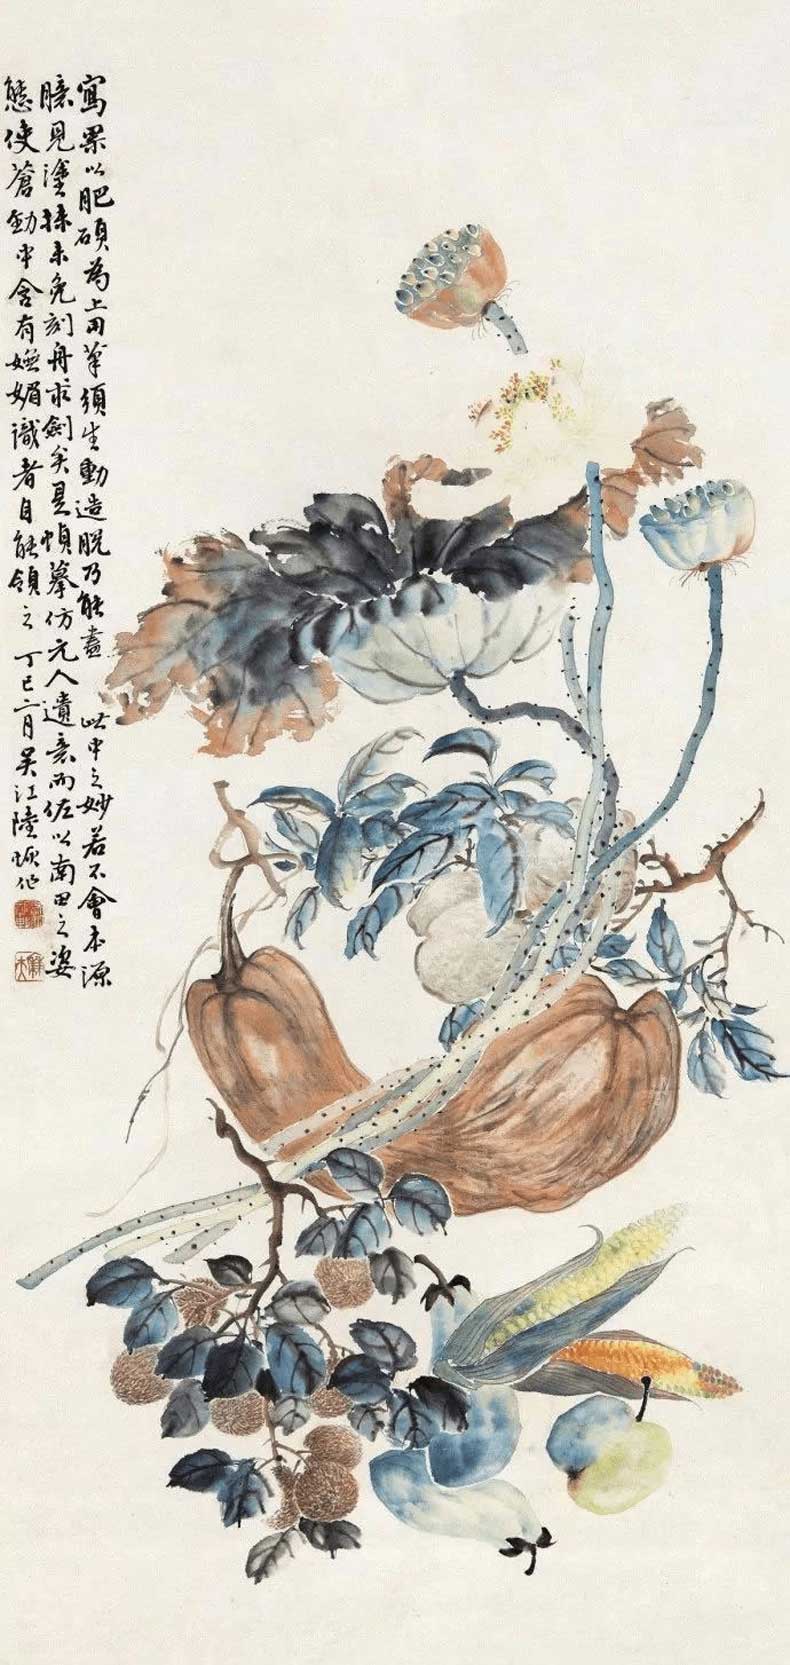 寫果以肥碩為上用筆須生動造脫乃能盡此中之妙若不會本源
臆見塗抹未免刻舟求劍矣是幀摹仿元人遺意而佐以南田之姿
態使蒼勁中含有嫵媚識者自能領之丁巳月吳江陸恢作